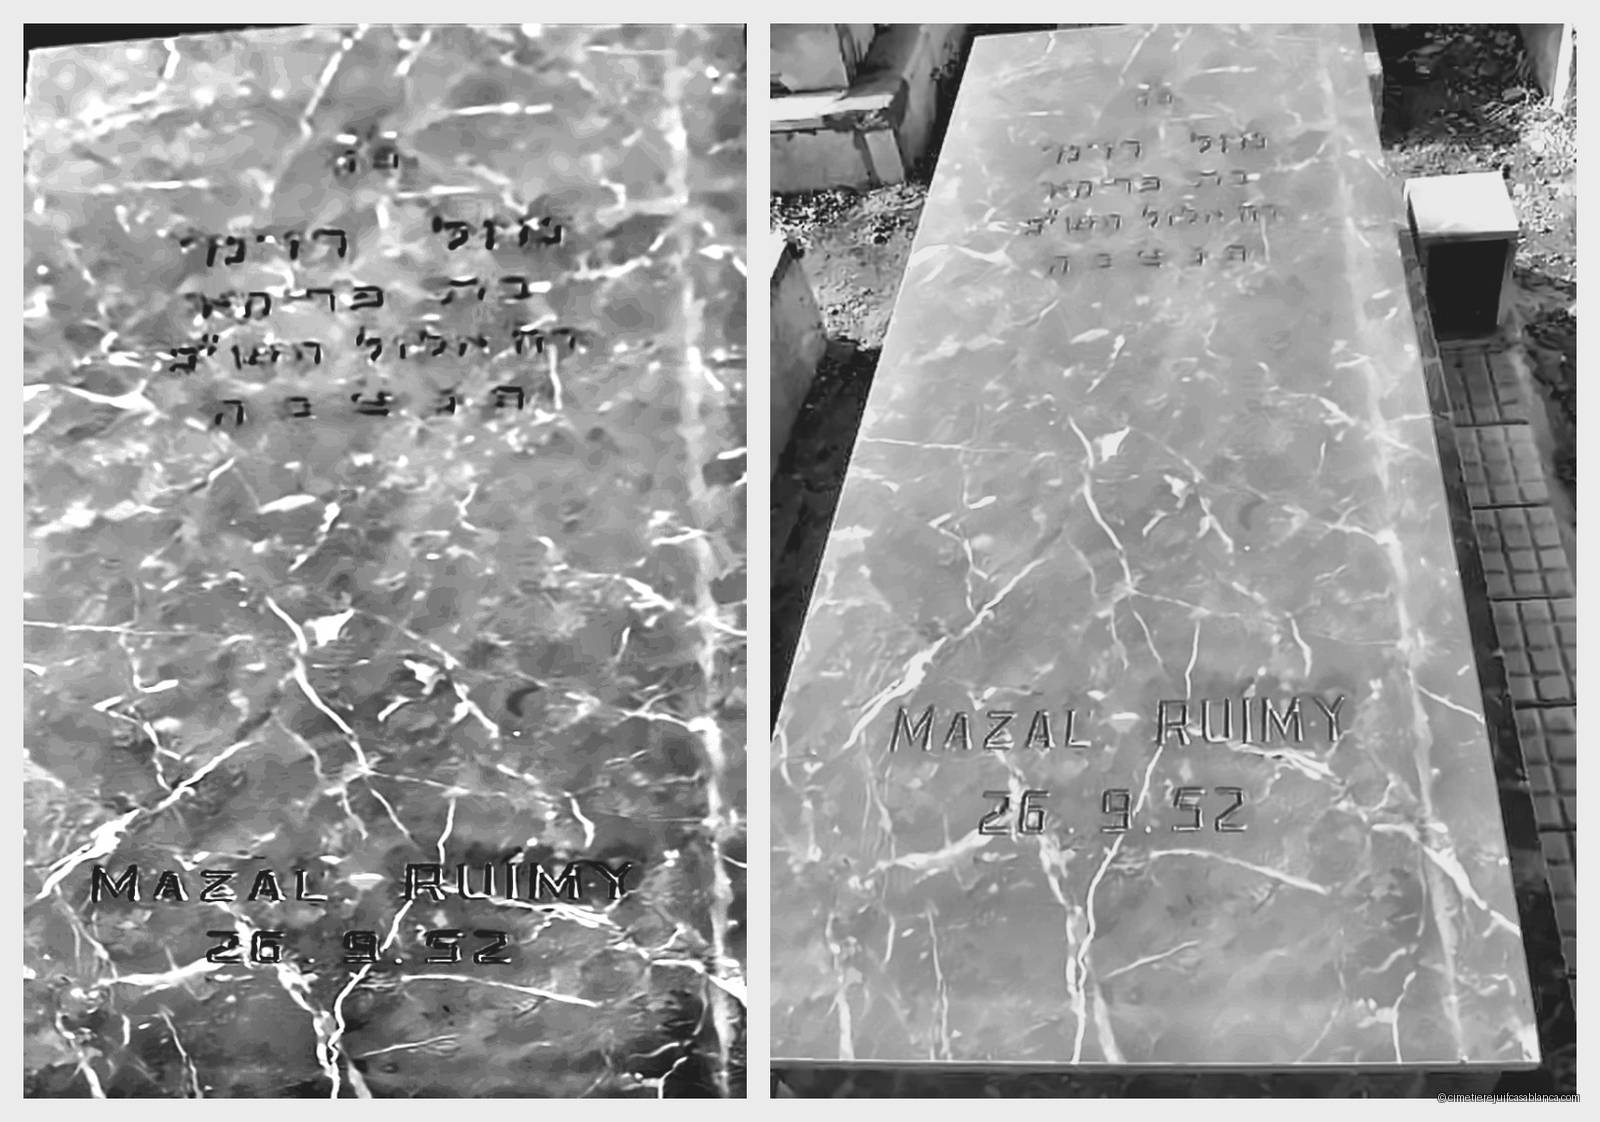 פה
מזל רוימי
בת פריחא
רח אלול
ת נ צ ב ה
MAZAL RUIMY
26.9.52
פה
מזל רוימי
בת פריחא
רח אלול
ת נ צ ב ה
MAZAL RUIMY
26.9.52
©cimetierejuifcasablanca.com